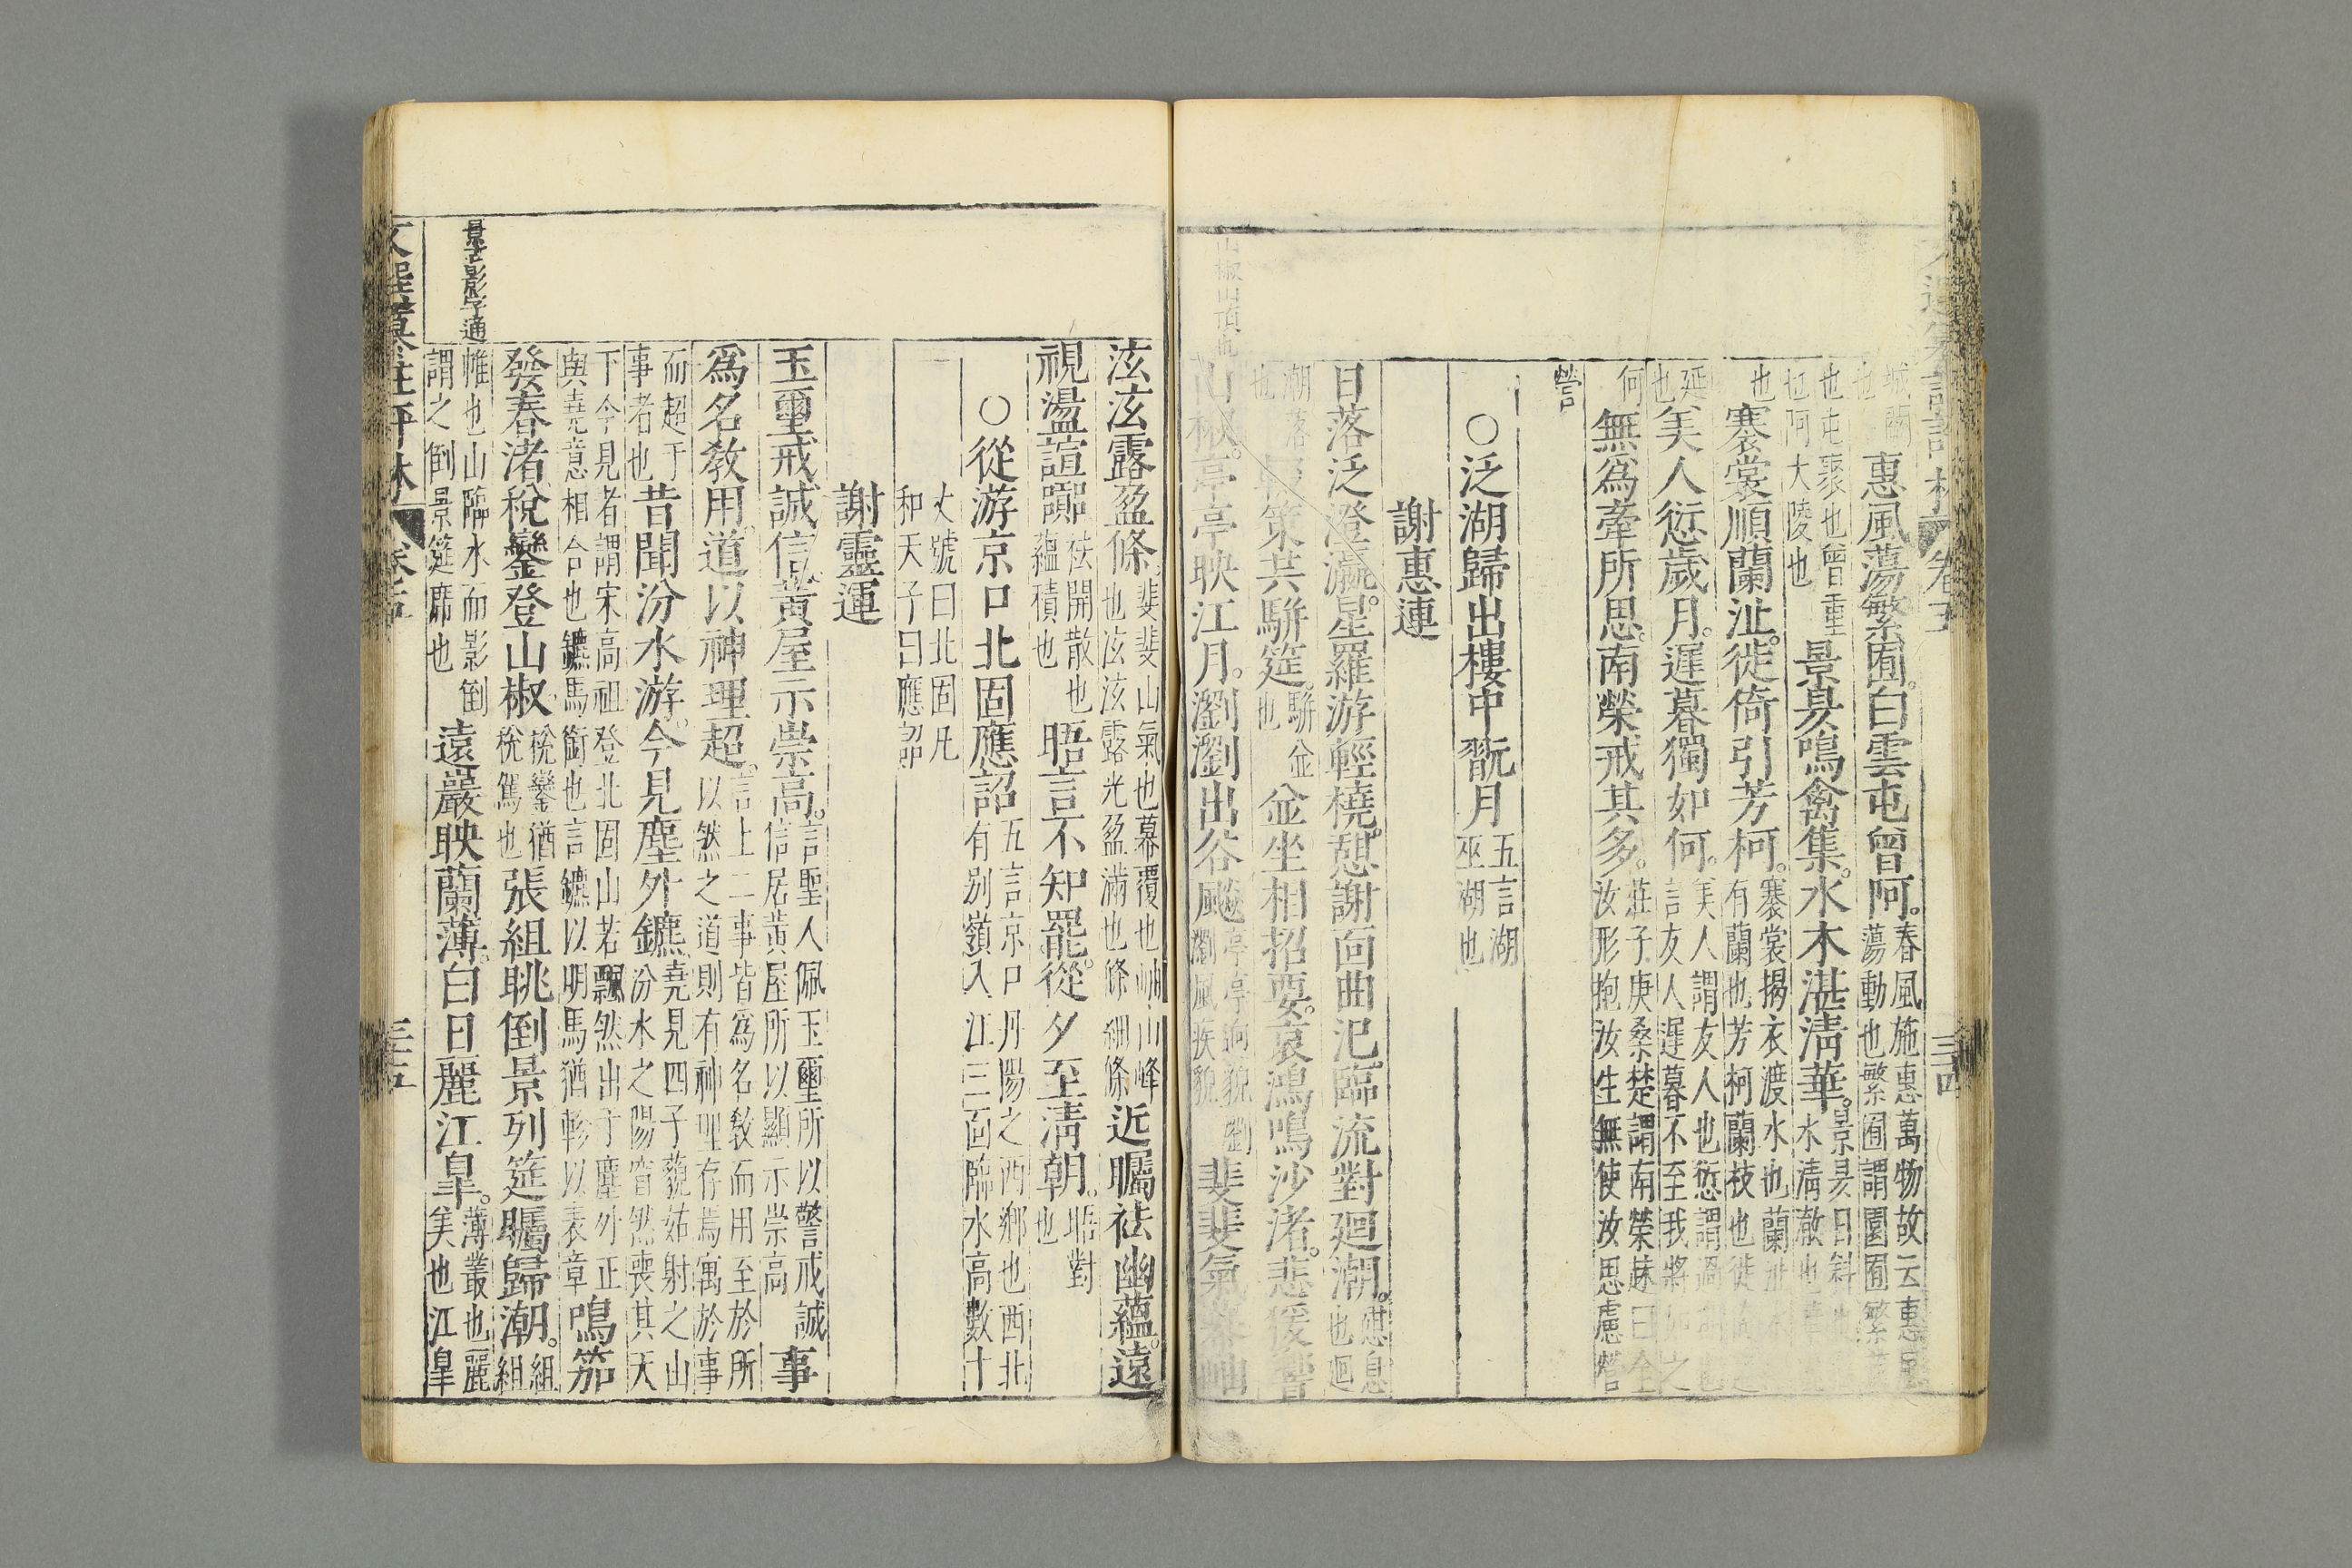 城闕
也
惠風蕩繁囿。白雲屯曾阿。
春風施惠萬物故云惠風
蕩動也繁囿謂園囿繁
也屯聚也曾重
也阿大陵也
景昃鳴禽集。水木湛清華。
景昃日斜
水清澈也
也
褰裳順蘭沚。徙倚引芳柯。
褰裳揭衣渡水也蘭沚
有蘭也芳柯蘭枝也徙倚
延
也
美人愆歲月。遲暮獨如何。
美人謂友人也愆謂過
言友人遲暮不至我將如之
何
無為牽所思。南榮戒其多。
莊子庚桑楚謂南榮趎曰全
汝形抱汝生無使汝思慮營
營
○泛湖歸出樓中翫月
五言湖
巫湖也
謝惠連
日落泛澄瀛。星羅游輕橈。憩謝面曲汜。臨流對廻潮。
憩息
也廻
潮落
也
輟策共駢筵。
駢並
也
並坐相招要。哀鴻鳴沙渚。悲猨響
山椒山頂也
山椒。亭亭映江月。瀏瀏出谷飈。
亭亭逈貌瀏
瀏風疾貌
斐斐氣羃岫
泫泫露盈條。
斐斐山氣也羃覆也岫山峰
也泫泫露光盈滿也條細條
近矚袪幽蘊。遠
視盪諠嚻。
袪開散也
蘊積也
晤言不知罷。從夕至清朝。
晤對
也
○從游京口北固應詔
五言京口丹陽之西鄉也西北
有別嶺入江三面臨水高數十
丈號曰北固凡
和天子曰應詔
謝靈運
玉璽戒誠信。黃屋示崇高。
言聖人佩玉璽所以警戒誠
信居黃屋所以顯示崇高
事
為名教用。道以神理超。
言上二事皆為名教而用至於所
以然之道則有神理存焉寓於事
而超于
事者也
昔聞汾水游。今見塵外鑣。
堯見四子藐姑射之山
汾水之陽窅然喪其天
下今見者謂宋高祖登北固山若飄然出于塵外正
與堯意相合也鑣馬銜也言鑣以明馬猶軫以表章
鳴笳
發春渚。稅鑾登山椒。
稅鑾猶
稅駕也
張組眺倒景。列筵矚歸潮。
組
組
景字影字通
帷也山臨水而影倒
謂之倒景筵席也
遠巖映蘭薄。白日麗江皐。
薄叢也麗
美也江皐
文選纂註評林
卷五
三十五
文選纂註評林
卷五
三十四